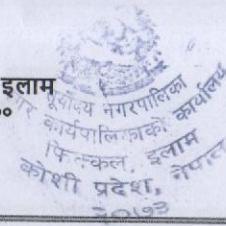 इलाम
००
सूर्योदय नगरपालिका
नगर कार्यपालिकाको कार्यालय
फिक्कल, इलाम
कोशी प्रदेश, नेपाल
२०७३